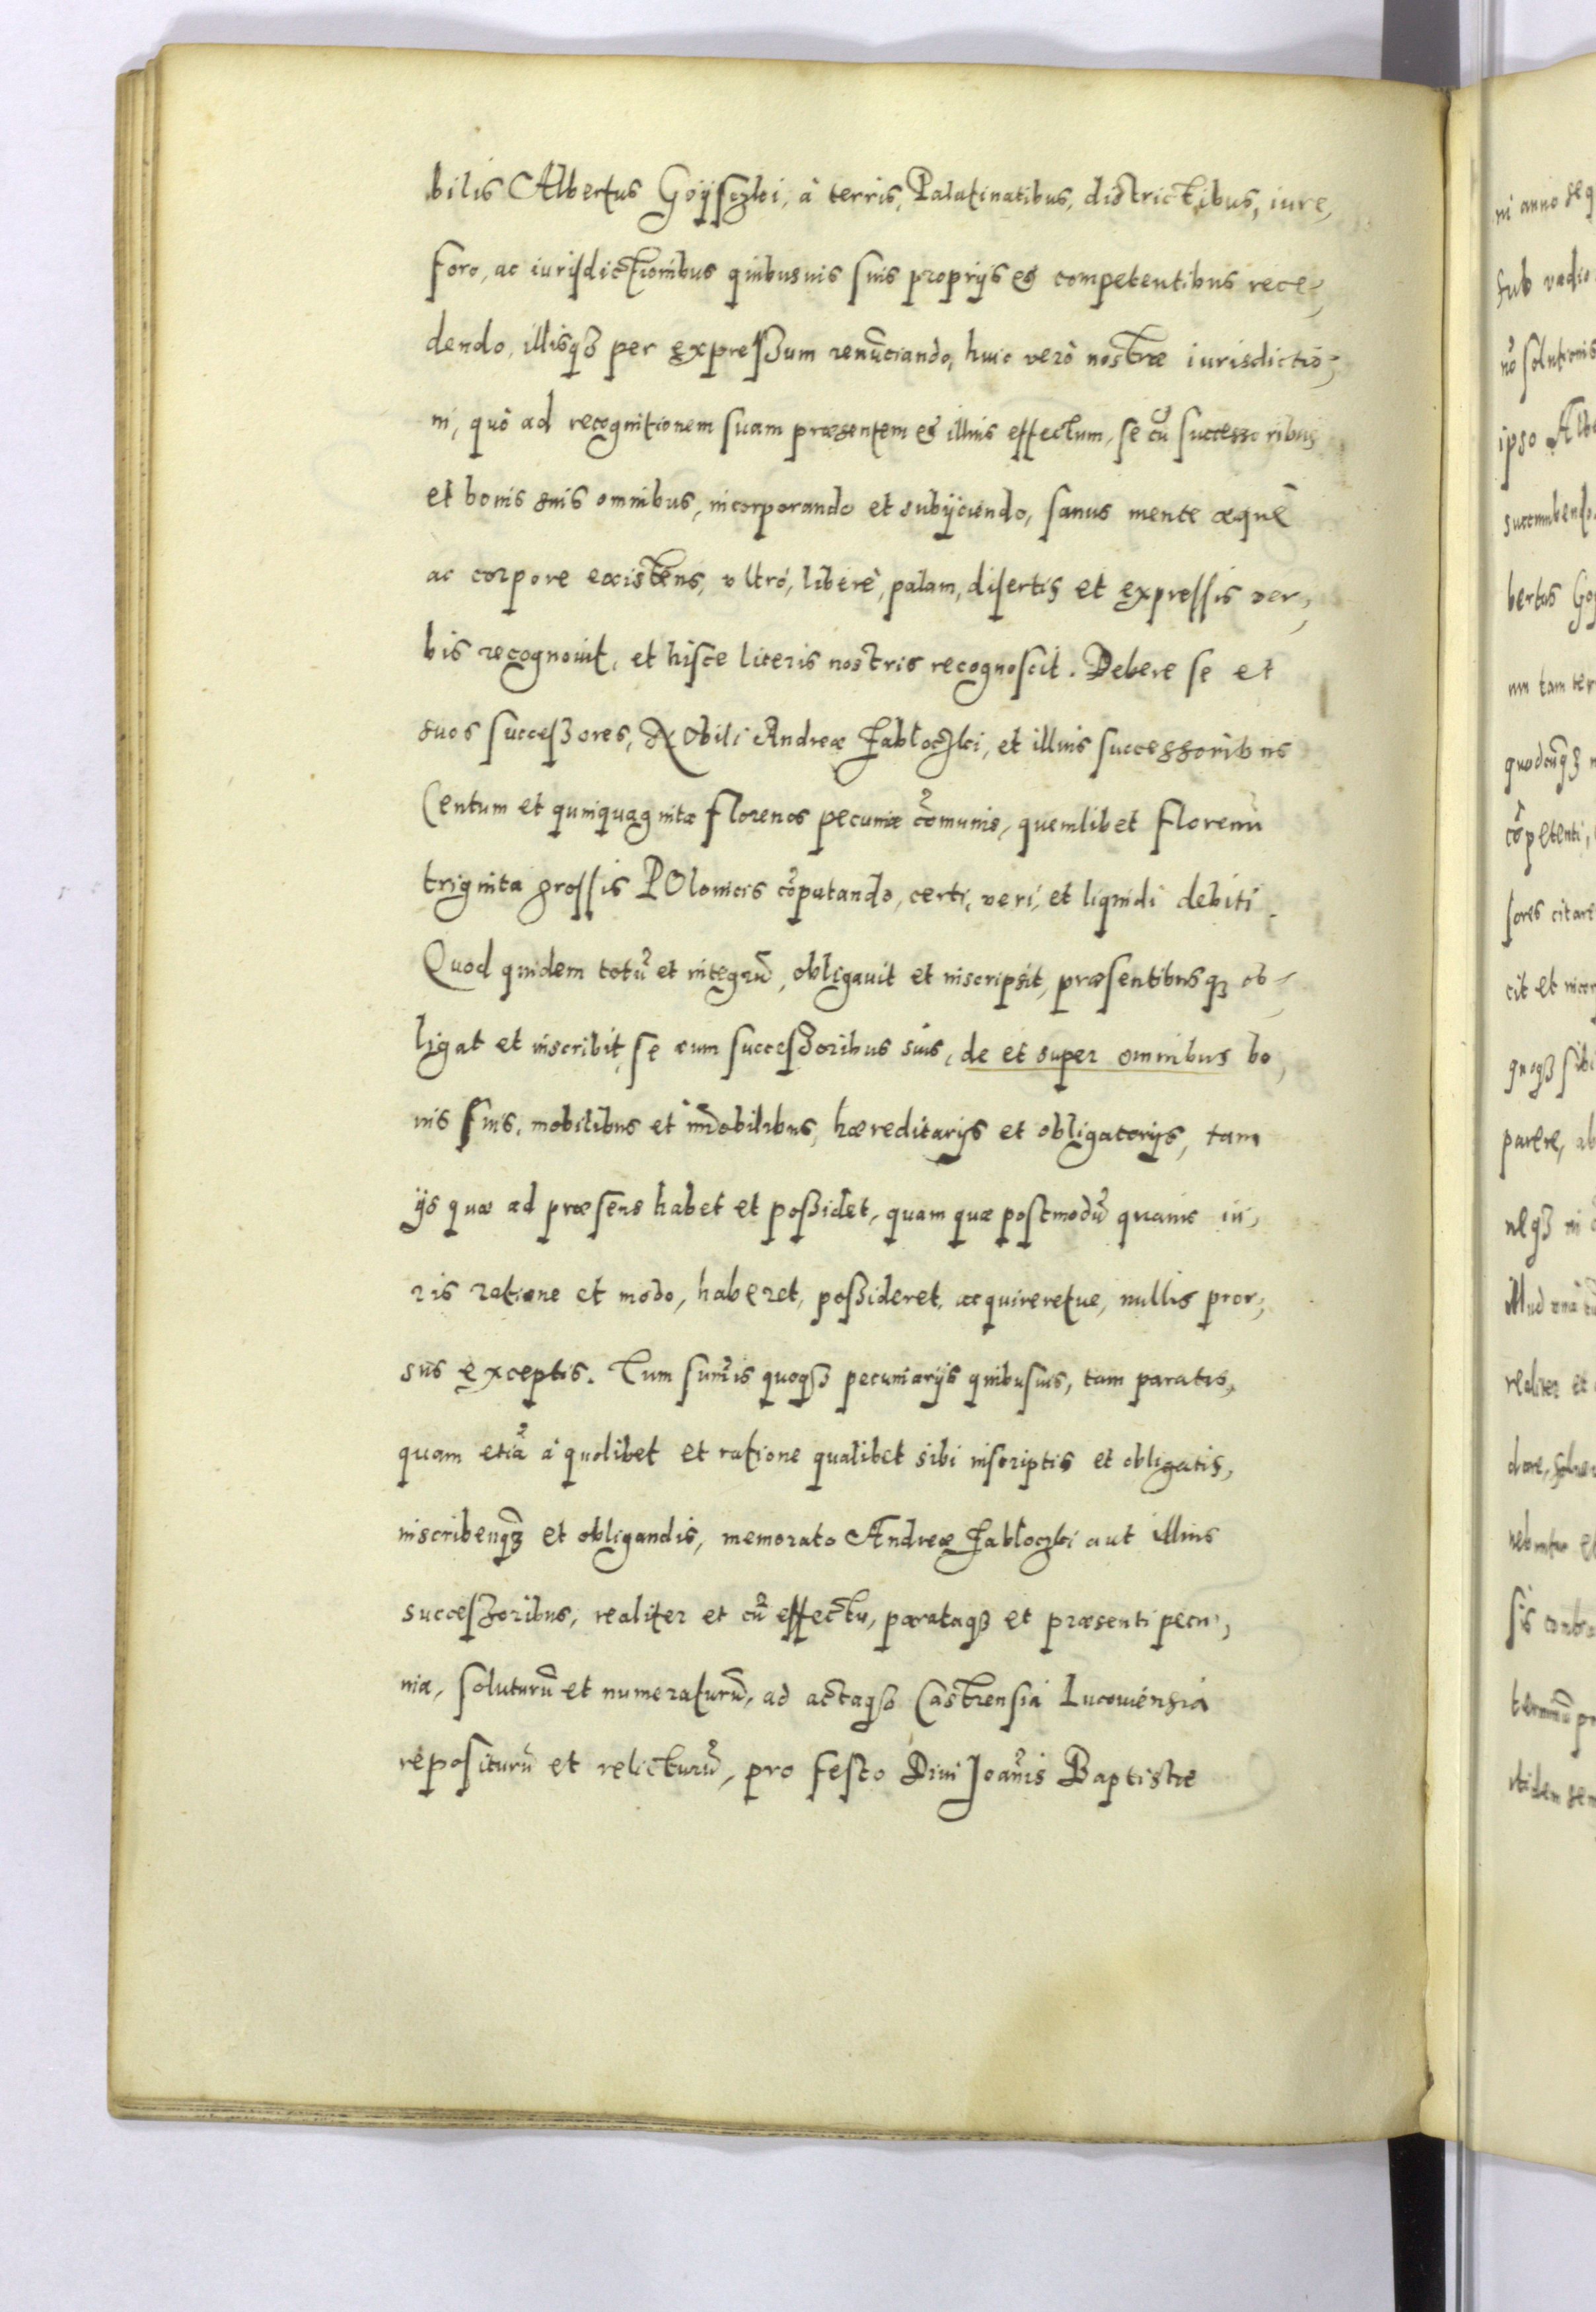 bilis Albertus Goÿsczki, à terris, Palatinatibus, districtibus, iure,
foro, ac iurisdictionibus quibusuis suis proprijs & competentibus rece-
dendo, illisq3 per expreſsum renũciando, huic verò nostræ iurisdictio-
ni, quò ad recognitionem suam præsentem & illius effectum, se cũ successoribus
et bonis suis omnibus, incorporando et subijciendo, sanus mente æquè
ac corpore existens, vltrò, liberè, palam, disertis et expressis ver-
bis recognouit, et hisce literis nostris recognoscit. Debere se et
suos succeſsores, Nobili Andreæ Jabłoczki, et illius successoribus
Centum et quinquaginta florenos pecuniæ cõmunis, quemlibet Florenũ
triginta grossis POlonicis cõputando, certi, veri, et liquidi debiti.
Quod quidem totũ et integrũ, obligauit et inscripsit, præsentibusq3 ob-
ligat et inscribit, se cum succeſsoribus suis, de et super omnibus bo-
nis suis, mobilibus et im̃obilibus, hæreditarijs et obligatorijs, tam
ijs quæ ad præsens habet et poſsidet, quam quæ postmodũ quauis iu-
ris ratione et modo, haberet, poſsideret, acquireretue, nullis pror-
sus exceptis. Tum sum̃is quoq3 pecuniarijs quibusuis, tam paratis,
quam etiã à quolibet et ratione qualibet sibi inscriptis et obligatis,
inscribenq3 et obligandis, memorato Andreæ Jabłoczki aut illius
succeſsoribus, realiter et cũ effectu, parataq3 et præsenti pecu-
nia, soluturũ et numeraturũ, ad actaq3 Castrensia Lucouiensia
repositurũ et relicturũ, pro festo Diui Joañis Baptistæ